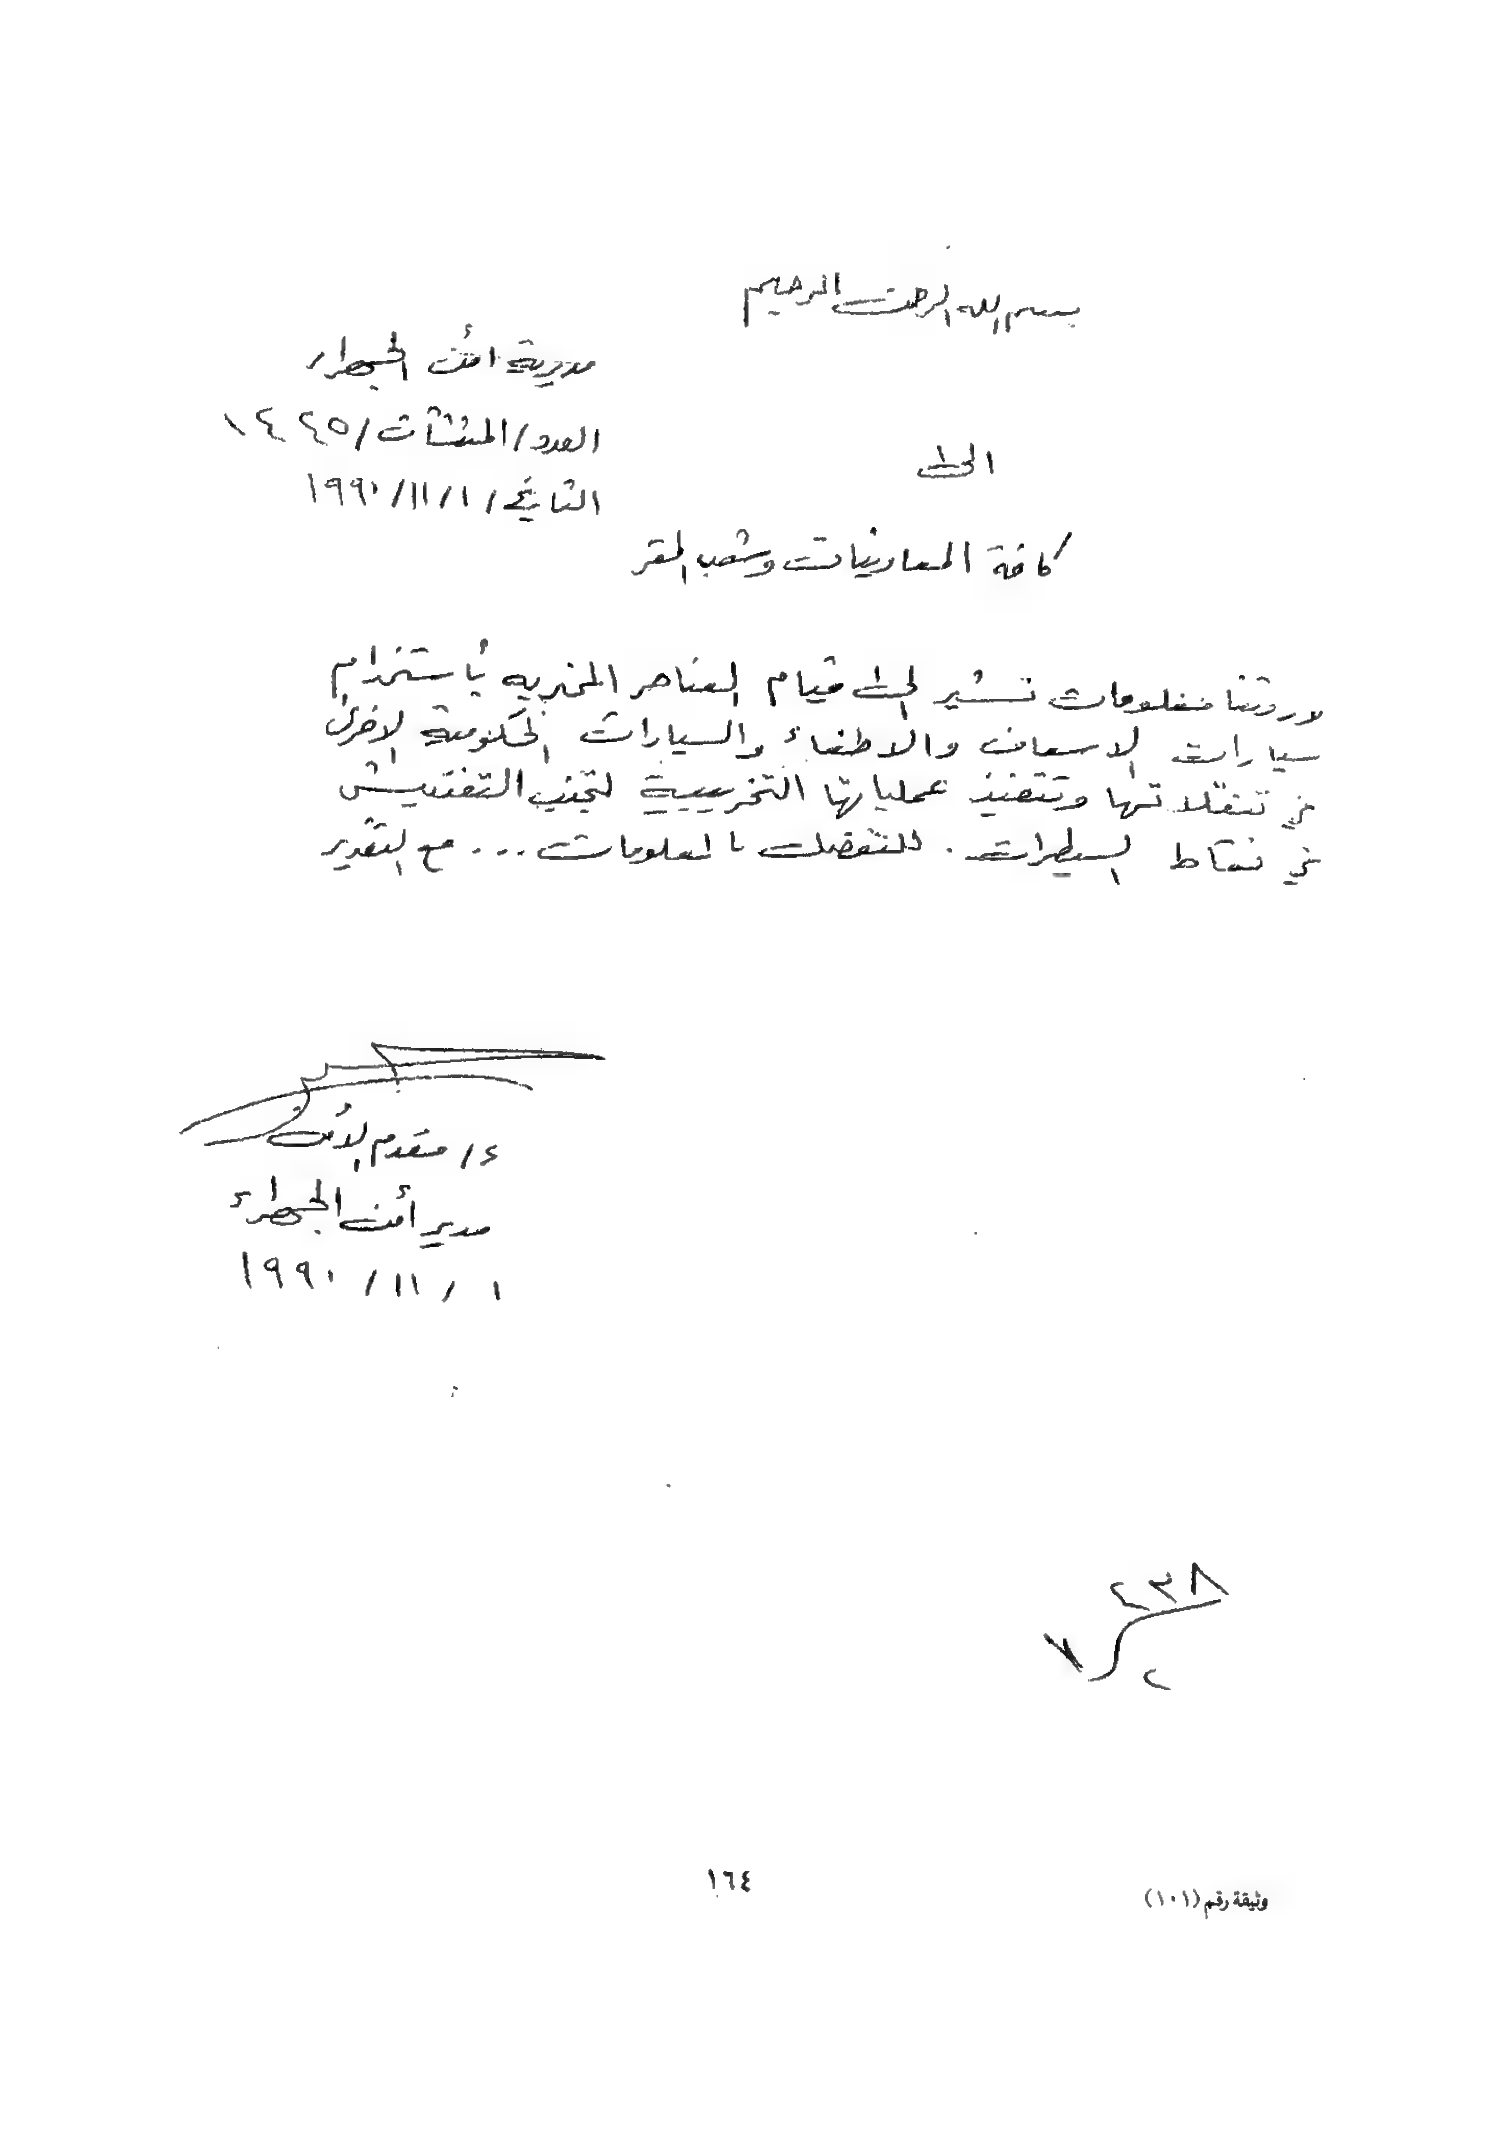 بسم الله الرحمن الرحيم
مديرية امن الجهراء
العدد/المنشآت/١٤٢٥
التاريخ/ ١/ ١١/ ١٩٩٠
الى
كافة المعاونيات وشعب المقر
وردتنا معلومات تشير الى قيام العناصر المخربه بأستخدام
سيارات الاسعاف والاطفاء والسيارات الحكومية الاخرى
في تنقلاتها وتنفيذ عملياتها التخريبية لتجنب التفتيش
في نقاط السيطرات. للتفضل بالمعلومات ... مع التقدير
ع/ مقدم الأمن
مدير أمن الجهراء
١ / ١١ / ١٩٩٠
٢٣٨
٢
١٦٤
وثيقة رقم (١٠١)